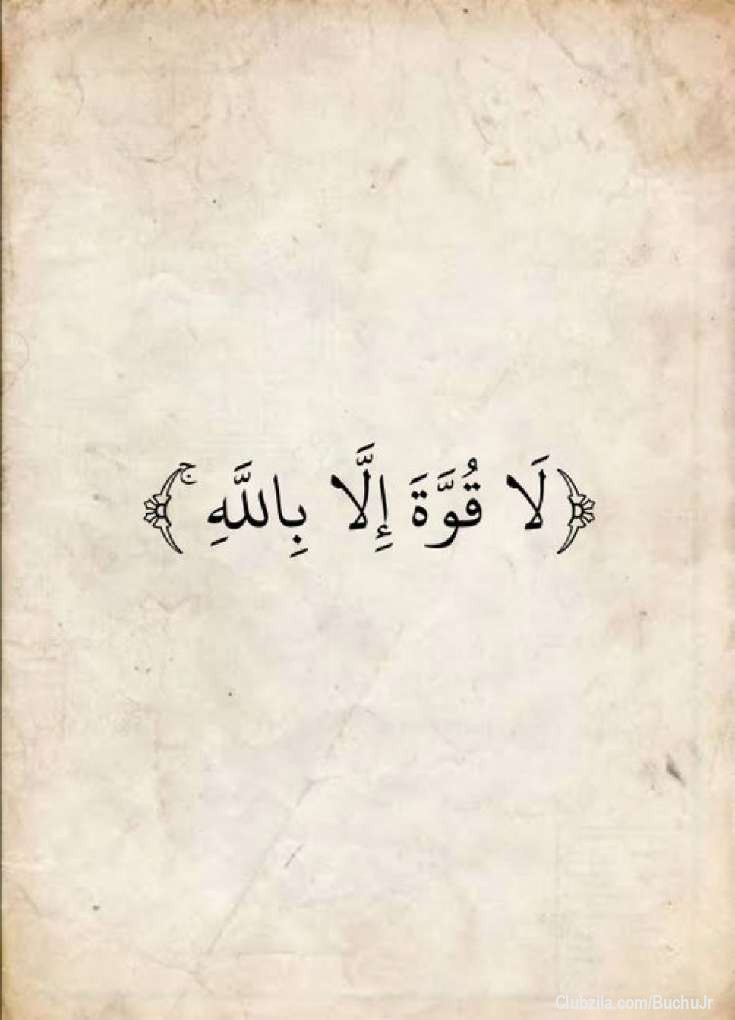 ﴿لَا قُوَّةَ إِلَّا بِاللَّهِ ۚ﴾
Clubzila.com/BuchuJr